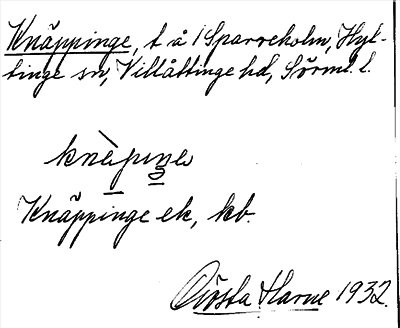 Knäppinge, t å 1 Sparreholm, Hyl-
tinge sn, Villåttinge hd, Sörml. l.
knèpiŋe
Knäppinge ek, kb.
Gösta Harne 1932.